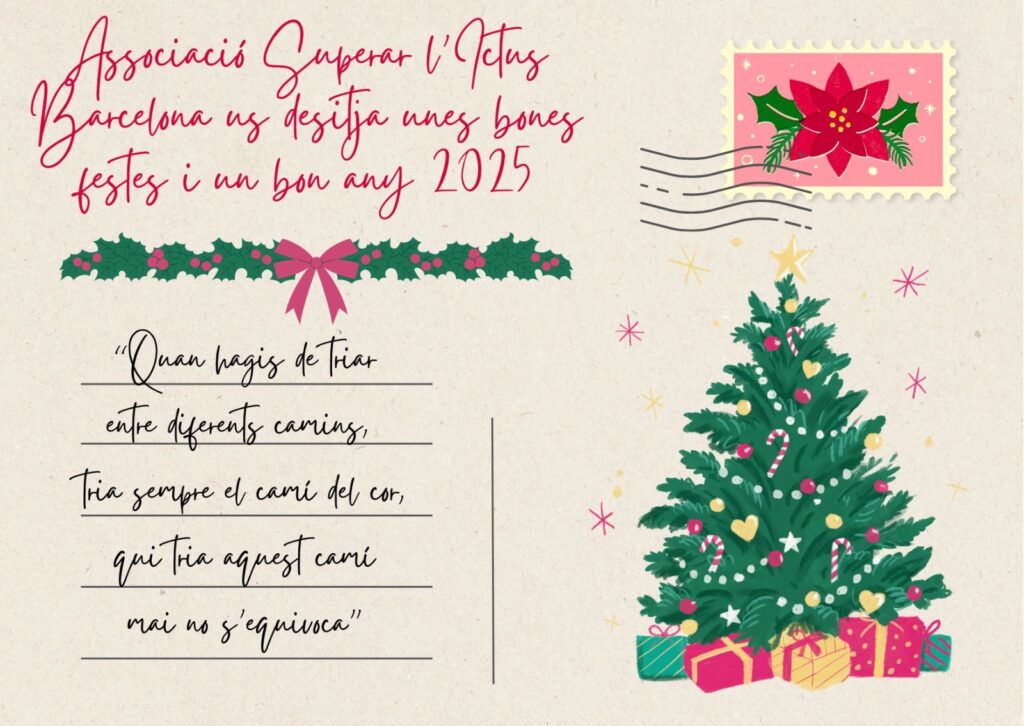 Associació Superar l'Ictus
Barcelona us desitja unes bones
festes i un bon any 2025
"Quan hagis de triar
entre diferents camins,
tria sempre el camí del cor,
qui tria aquest camí
mai no s'equivoca"